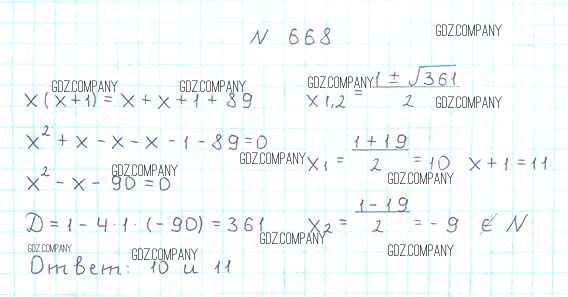 N 668
GDZ.COMPANY
GDZ.COMPANY
GDZ.COMPANY
GDZ.COMPANY
x(x+1) = x + x + 1 + 89
x1,2 = (1 ± √361)/2
GDZ.COMPANY
x² + x - x - x - 1 - 89 = 0
GDZ.COMPANY
x1 = (1+19)/2 = 10 x+1 = 11
GDZ.COMPANY
GDZ.COMPANY
x² - x - 90 = 0
D = 1 - 4·1·(-90) = 361
x2 = (1-19)/2 = -9 ∉ N
GDZ.COMPANY
GDZ.COMPANY
GDZ.COMPANY
GDZ.COMPANY
Ответ: 10 и 11